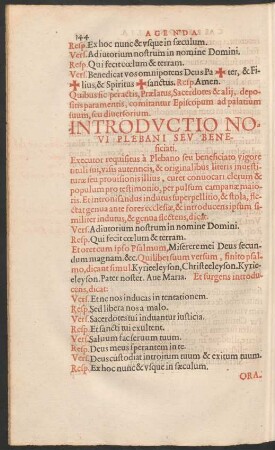 144 AGENDA
Resp. Ex hoc nunc & vsque in sæculum.
Vers. Adiutorium nostrũ in nomine Domini.
Resp. Qui fecit cœlum & terram.
Vers. Benedicat vos omnipotens Deus Pa ✠ ter, & Fi-
✠ lius, & Spiritus ✠ sanctus. Resp. Amen.
Quibus sic peractis, Prælatus, Sacerdotes & alij, depo-
sitis paramentis, comitantur Episcopum ad palatium
suum, seu diuersorium.
INTRODVCTIO NO-
VI PLEBANI SEV BENE-
ficiati.
Executor requisitus à Plebano seu beneficiato vigore
nulli sui, visis autenticis, & originalibus literis inuesti-
turæ seu prouisionis illius, curet conuocari clerum &
populum pro testimonio, per pulsum campanæ maio-
ris. Et introisandus indutus superpellitio, & stola, fle-
ctat genua ante fores ecclesiæ, & introducens ipsum si-
militer indutus, & genua flectens, dicit.
Vers. Adiutorium nostrum in nomine Domini.
Resp. Qui fecit cœlum & terram.
Et oretur cum ipso Psalmum, Miserere mei Deus secun-
dum magnam. &c. Quilibet suum versum, finito psal-
mo, dicant simul. Kyrie eleyson, Christe eleyson. Kyrie
eleyson. Pater noster. Aue Maria. Et surgens introdu-
cens, dicat:
Vers. Et ne nos inducas in tentationem.
Resp. Sed libera nos a malo.
Vers. Sacerdotes tui induantur iusticia.
Resp. Et sancti tui exultent.
Vers. Saluum fac seruum tuum.
Resp. Deus meus sperantem in te.
Vers. Deus custodiat introitum tuum & exitum tuum.
Resp. Ex hoc nunc & vsque in sæculum.
ORA-